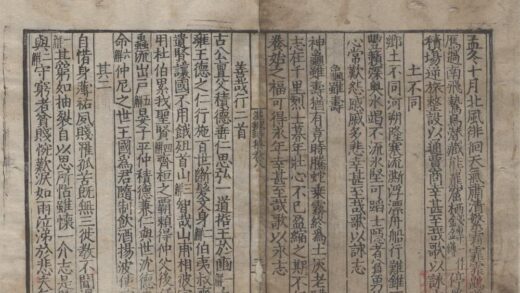 孟冬十月北風徘徊天氣肅清繁霜霏霏
鴈過南飛鷙鳥潛藏熊羆窟栖
積場逆旅整設以通賈商幸甚至哉歌以
土不同
鄉土不同河朔隆寒流澌浮漂舟船行難錐
豐籟深奧水竭不流冰堅可蹈士隱者貧勇
心常歎怨戚戚多悲幸甚至哉歌以詠志
龜雖壽
神龜雖壽猶有竟時騰蛇乘霧終為土灰老
志在千里烈士暮年壯心不已盈縮之期不
養怡之福可得永年幸甚至哉歌以永志
善哉行二首
古公亶父積德垂仁思弘一道哲王於豳
雍王德之仁行施百世斷髮文身解伯夷叔
遺賢讓國不用餓殂首山解智哉山甫相彼
用杜伯累我聖賢解齊桓之霸賴得仲父後
蟲流出戶解晏子平仲積德兼仁與世沈德
命解仲尼之世王國為君隨制飲酒揚波使
其二
自惜身薄祜夙賤罹孤苦既無三徙教不聞
其窮如抽裂自以思所怙雖懷一介志是
與仁守窮者貧賤惋歎淚如雨泣涕於悲夫